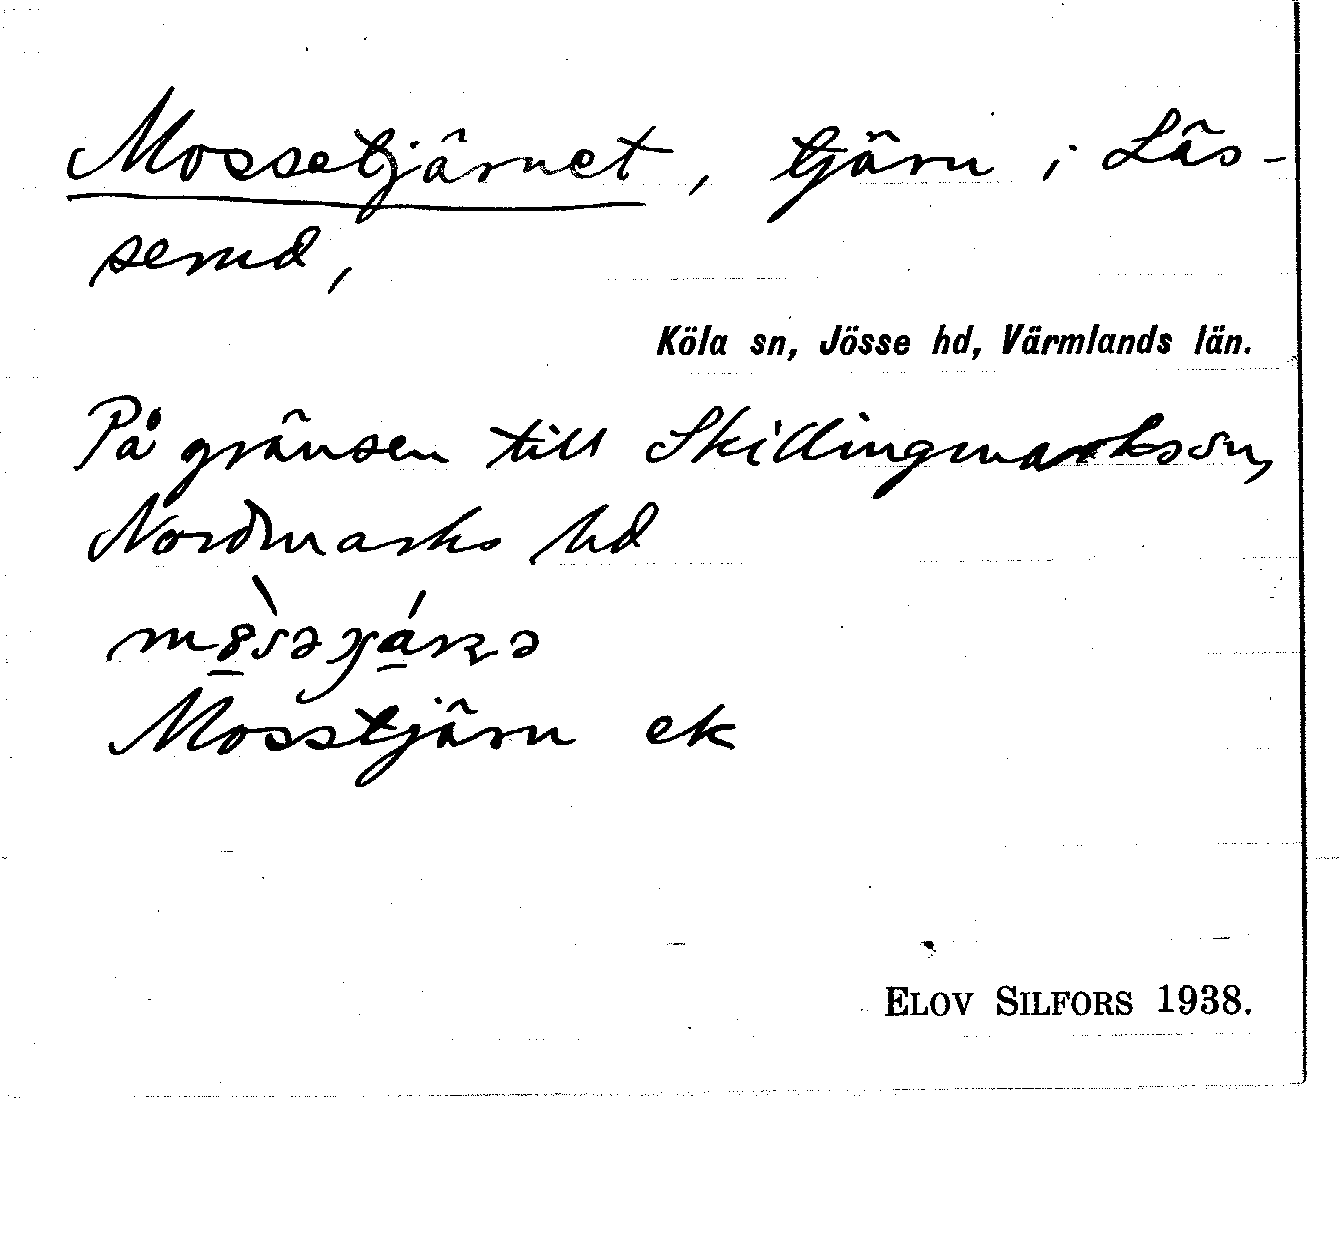 Mossetjärnet, tjärn i Läs-
serud,
Köla sn, Jösse hd, Värmlands län.
På gränsen till Skillingmarks sn,
Nordmarks hd
Mosstjärn ek
ELOV SILFORS 1938.